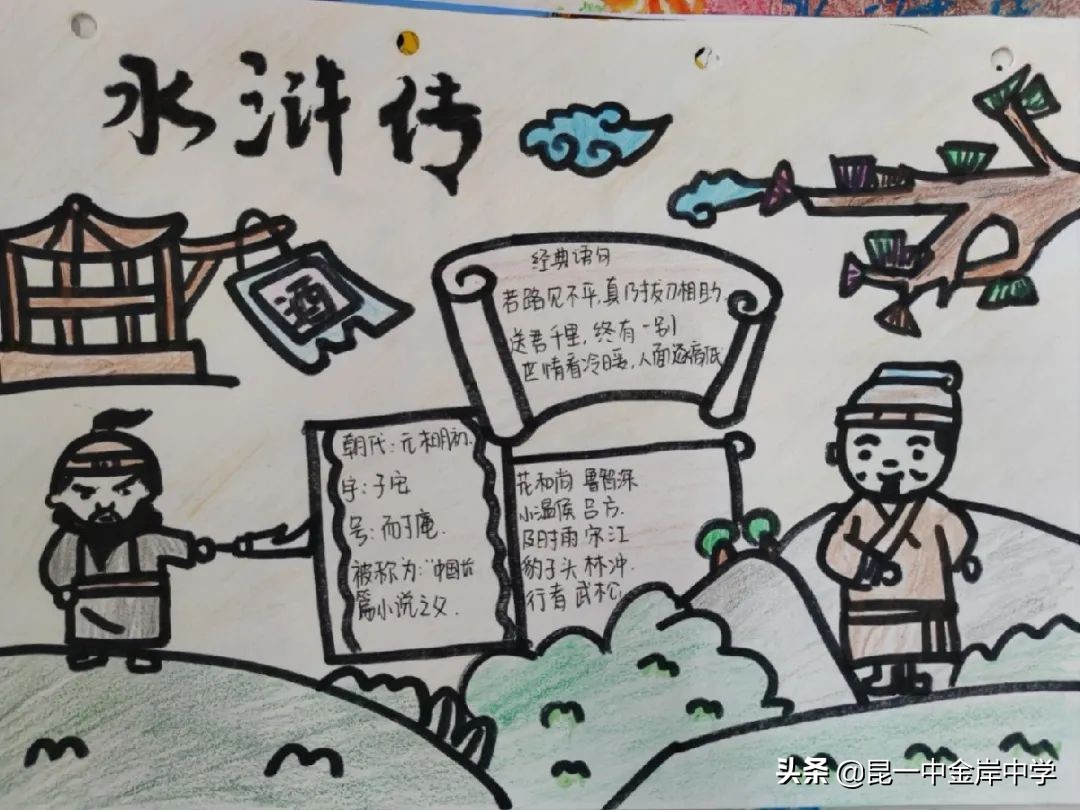 水浒传
酒
经典语句
若路见不平,真乃拔刀相助.
送君千里,终有一别
世情看冷暖,人面逐高低
朝代:元末明初.
字:子安
号:而于庵.
被称为:"中国长
篇小说之父.
花和尚 鲁智深
小温侯 吕方.
及时雨 宋江
豹子头 林冲.
行者 武松.
头条 @昆一中金岸中学